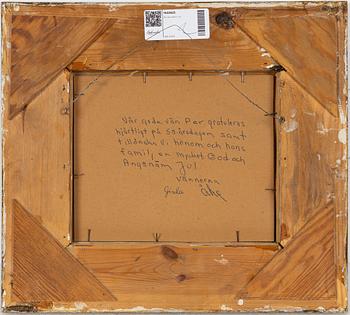 Vår goda vän Per gratuleras
hjärtligt på 50 årsdagen samt
tillönskas vi honom och hans
familj en mycket God och
Angenäm Jul
Vännerna
Gisela Åke